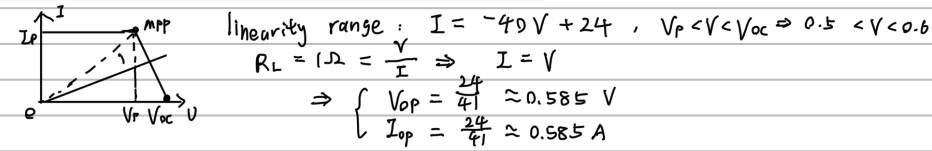 I
Ip
MPP
e
Vp Voc U
linearity range : I = -40V + 24 , Vp < V < Voc ⇒ 0.5 < V < 0.6
RL = 1Ω = V/I ⇒ I = V
⇒ { Vop = 24/41 ≈ 0.585 V
Iop = 24/41 ≈ 0.585 A